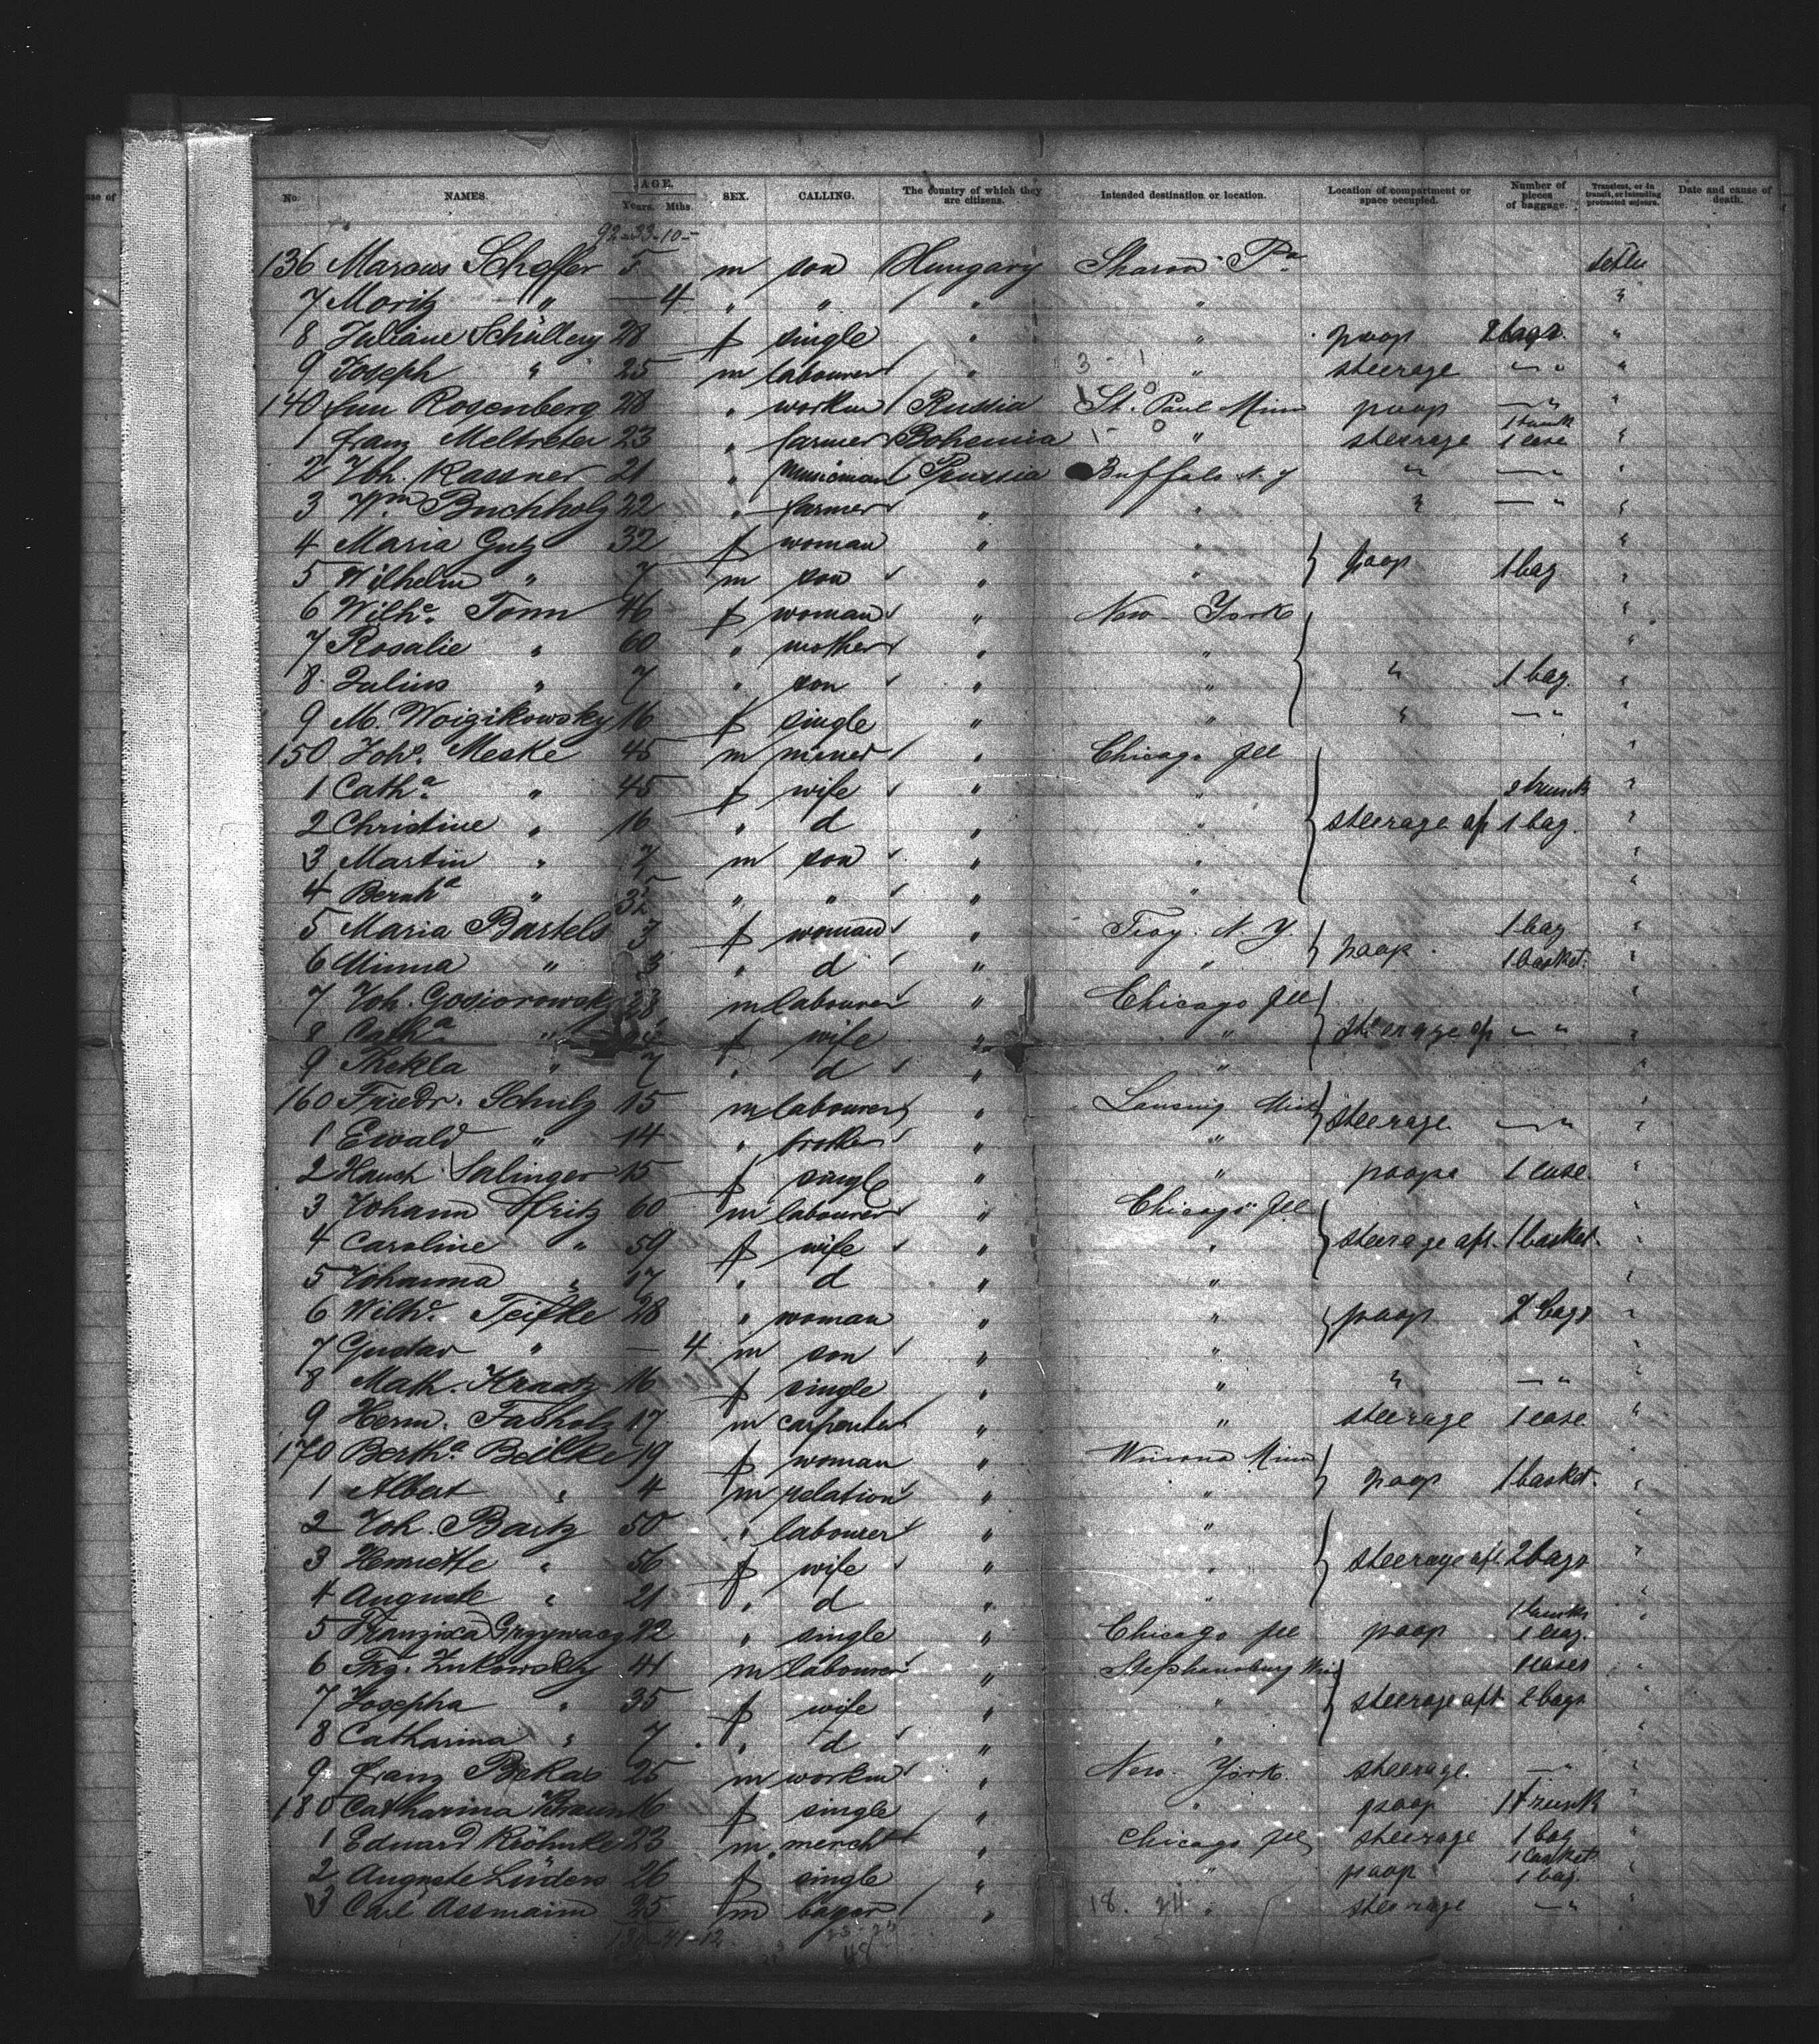 use of
No. NAMES. AGE. Years. Mths. SEX. CALLING. The country of which they are citizens. Intended destination or location. Location of compartment or space occupied. Number of pieces of baggage. Transient, or in transit, or intending protracted sojourn. Date and cause of death.
92-33-10-
136 Marcus Scheffer 5 m son Hungary Sharon Pa settle
7 Moritz " — 4 " " " " "
8 Juliane 28 f single " " poop 2 bags "
9 Joseph " 25 m labourer " " steerage — " "
140 Rosenberg 28 " workm Russia St. Paul Minn poop — " "
1 Franz Meltreter 23 " farmer Bohemia " steerage 1 trunk 1 case "
2 Joh. Kassner 21 " musician Prussia Buffalo N.Y " — "
3 Wm Buchholz 22 " farmer " " " — " "
4 Maria Gutz 32 f woman " " "
5 Wilhelm " 7 m son " " poop 1 bag "
6 Wilhe. Tonn 46 f woman " New York "
7 Rosalie " 60 " mother " " "
8 Julius " 7 " son " " " 1 bag. "
9 M. Woigikowsky 16 f single " " " — " "
150 Joha. Meske 45 m " Chicago Ill "
1 Catha. " 45 f wife " " 2 trunk "
2 Christine " 16 " d " " steerage af 1 bag. "
3 Martin " 7 m son " " "
4 " " " " " "
5 Maria Bartels f woman " Troy. N.Y. 1 bag "
6 Minna " 3 " d " " poop 1 basket. "
7 Joh. Gosiorowsk 28 m labourer " Chicago Ill "
8 Catha " f wife " " steerage af — " "
9 Thekla " 7 " d " " "
160 Friedr. Schulz 15 m labourer " Lansing Mich steerage — " "
1 Ewald " 14 " brother " " "
2 Salinger 15 f single " " poop 1 case. "
3 Johann 60 m labourer " Chicago Ill "
4 Caroline " 59 f wife " " steerage aft. 1 basket. "
5 Johanna " 17 " d " " "
6 Wilhe. 28 " woman " " poop 2 bags "
7 Gustav " — 4 m son " " "
8 Math. Kraatz 16 f single " " " — " "
9 Herm. Fasholz 17 m carpenter " " steerage 1 case "
170 Bertha. Beilke 19 f woman " Winona Minn "
1 Albert " 4 m relation " " poop 1 basket. "
2 Joh. Bartz 50 " labourer " " "
3 Henriette " 56 f wife " " steerage aft 2 bags "
4 Auguste " 21 " d " " "
5 Franziska Grzywacz 22 " single " Chicago Ill poop 1 trunk 1 bag. "
6 Zukowsky 41 m labourer " Stephansburg "
7 Josepha " 35 f wife " " steerage aft 2 bags "
8 Catharina " 7 " d " " "
9 Franz 25 m workm " New York. steerage. — " "
180 Catharina Braun 16 f single " " poop 1 trunk "
1 Eduard Kröhnke 23 m mercht " Chicago Ill steerage 1 bag "
2 Auguste Lüders 26 f single " " poop 1 basket 1 bag. "
3 Carl Assmann 25 m " " steerage — " "
48